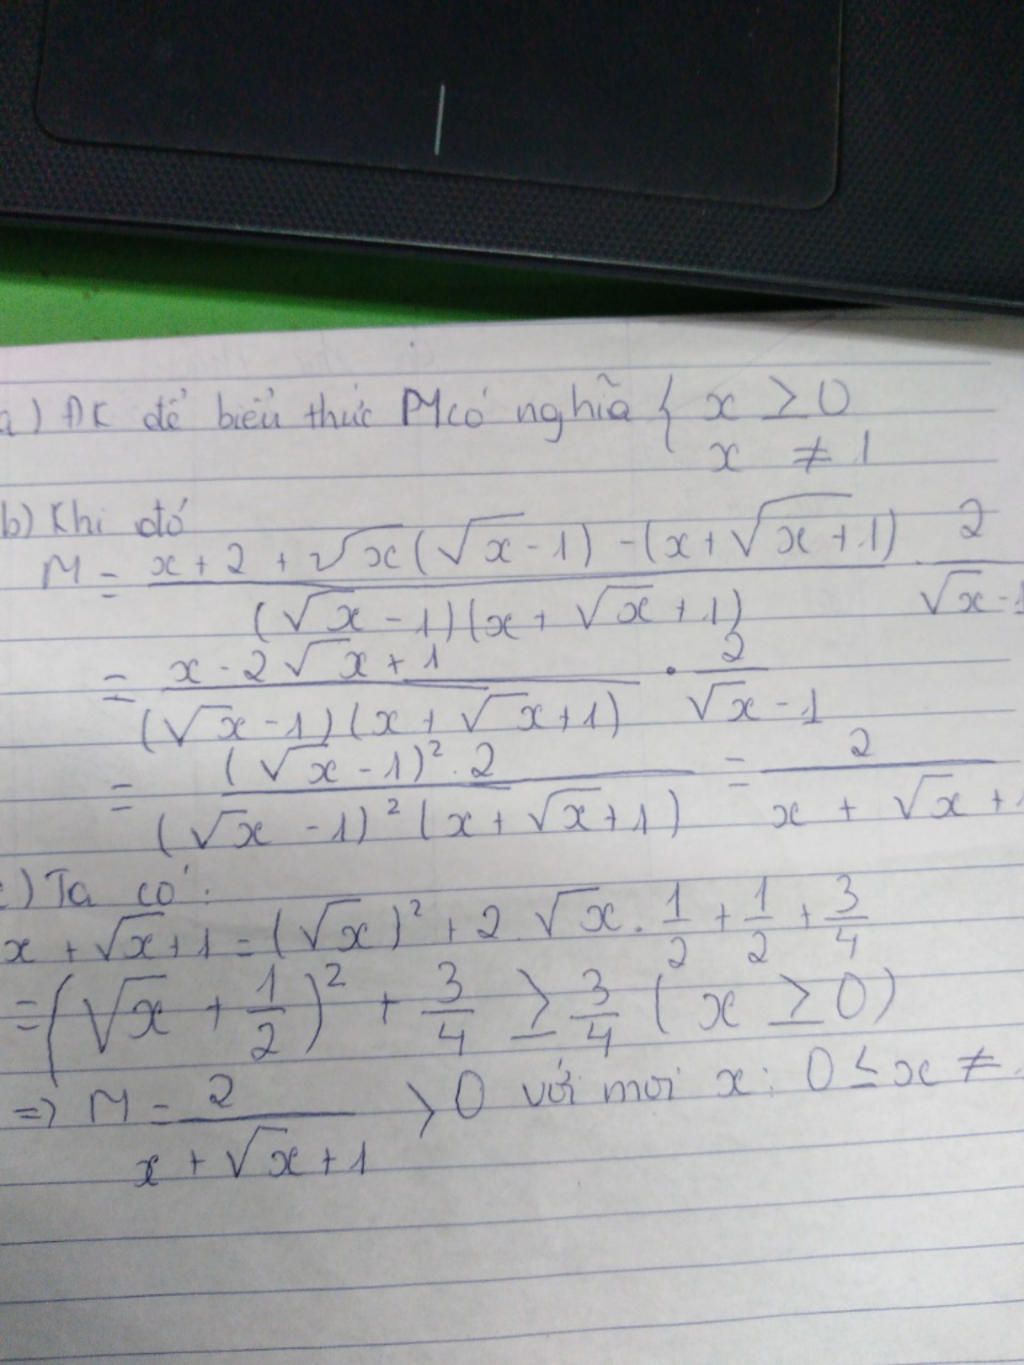 a) ĐK để biểu thức M có nghĩa { x ≥ 0
x ≠ 1
b) Khi đó
M = \frac{x + 2 + \sqrt{x}(\sqrt{x} - 1) - (x + \sqrt{x} + 1)}{(\sqrt{x} - 1)(x + \sqrt{x} + 1)} \cdot \frac{2}{\sqrt{x} - 1}
= \frac{x - 2\sqrt{x} + 1}{(\sqrt{x} - 1)(x + \sqrt{x} + 1)} \cdot \frac{2}{\sqrt{x} - 1}
= \frac{(\sqrt{x} - 1)^2 . 2}{(\sqrt{x} - 1)^2 (x + \sqrt{x} + 1)} = \frac{2}{x + \sqrt{x} + 1}
c) Ta có:
x + \sqrt{x} + 1 = (\sqrt{x})^2 + 2.\sqrt{x}.\frac{1}{2} + \frac{1}{2} + \frac{3}{4}
= (\sqrt{x} + \frac{1}{2})^2 + \frac{3}{4} ≥ \frac{3}{4} (x ≥ 0)
=> M = \frac{2}{x + \sqrt{x} + 1} > 0 với mọi x: 0 ≤ x ≠